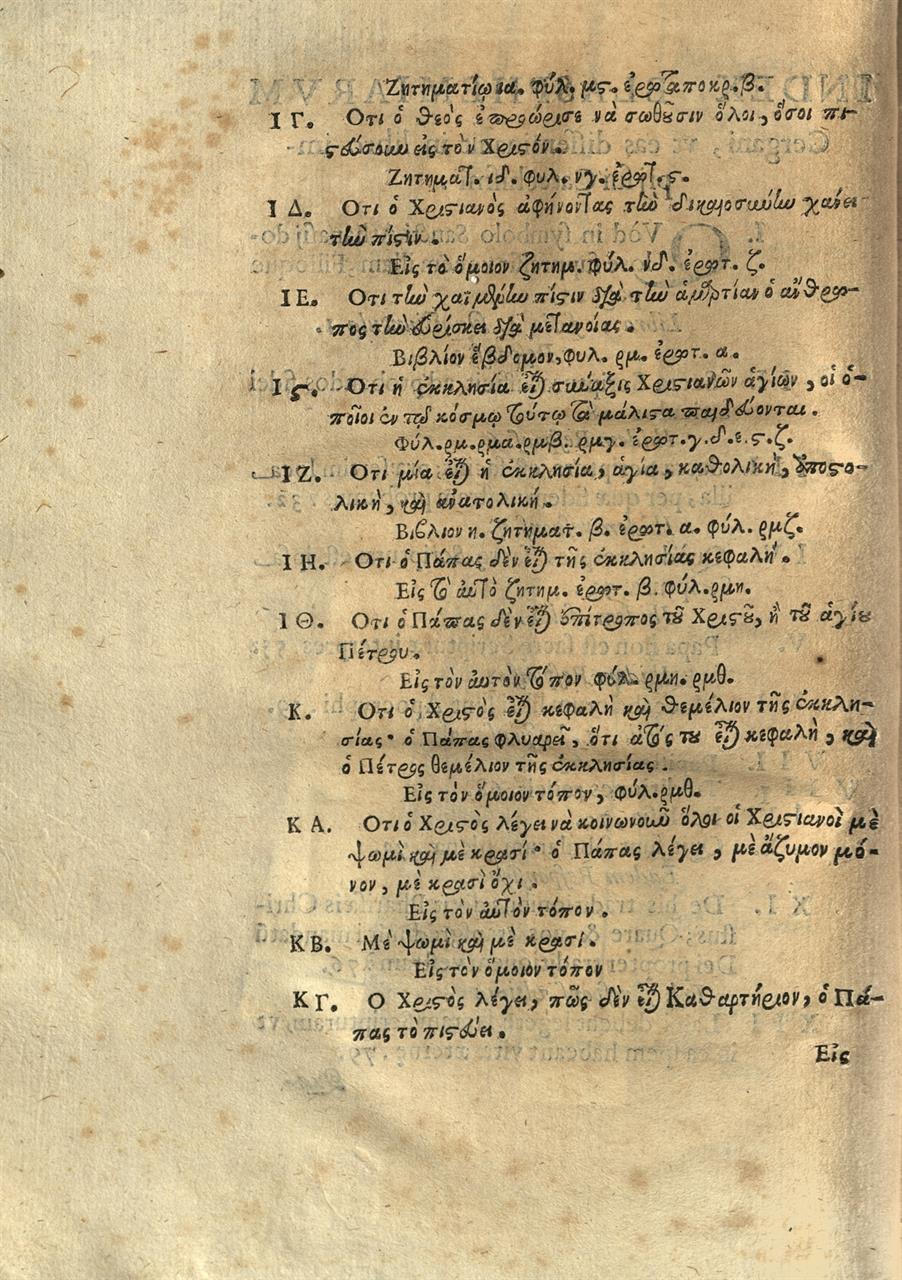 Ζητηματίω ια. φύλ. μς. ἐρωτ αποκρ. β.
ΙΓ. Οτι ὁ θεὸς ἐπροώρισε νὰ σωθοῦσιν ὅλοι, ὅσοι πι-
ςεύσουν εἰς τον Χριςόν.
Ζητηματ. ιδ. φυλ. νγ. ἐρωτ. ς.
ΙΔ. Οτι ὁ Χριςιανὸς ἀφήνοντας τὴν δικαιοσύνην χάνει
τὴν πίςιν.
Εἰς τὸ ὅμοιον ζητημ. φύλ. νδ. ἐρωτ. ζ.
ΙΕ. Οτι τὴν χαϊμένην πίςιν διὰ τὴν ἁμαρτίαν ὁ ἄνθρω-
πος τὴν εὑρίσκει διὰ μετανοίας.
Βιβλίον ἕβδομον, φυλ. ρμ. ἐρωτ. α.
Ις. Οτι ἡ ἐκκλησία εἶναι σύναξις Χριςιανῶν ἁγίων, οἱ ὁ-
ποῖοι ἐν τῷ κόσμῳ τούτῳ τὰ μάλιςα παιδεύονται.
Φύλ. ρμ. ρμα. ρμβ. ρμγ. ἐρωτ. γ. δ. ε. ς. ζ.
ΙΖ. Οτι μία εἶναι ἡ ἐκκλησία, ἁγία, καθολικὴ, ἀποςο-
λικὴ, καὶ ἀνατολική.
Βιβλιον η. ζητηματ. β. ἐρωτ. α. φύλ. ρμζ.
ΙΗ. Οτι ὁ Πάπας δὲν εἶναι τῆς ἐκκλησίας κεφαλή.
Εἰς τὸ αὐτὸ ζητημ. ἐρωτ. β. φύλ. ρμη.
ΙΘ. Οτι ὁ Πάπας δὲν εἶναι ἐπίτροπος τοῦ Χριςοῦ, ἢ τοῦ ἁγίου
Πέτρου.
Εἰς τὸν αυτὸν τόπον φύλ. ρμη. ρμθ.
Κ. Οτι ὁ Χριςὸς εἶναι κεφαλὴ καὶ θεμέλιον τῆς ἐκκλη-
σίας· ὁ Πάπας φλυαρεῖ, ὅτι ἀτός του εἶναι κεφαλὴ, καὶ
ὁ Πέτρος θεμέλιον τῆς ἐκκλησίας.
Εἰς τὸν ὅμοιον τόπον, φύλ. ρμθ.
ΚΑ. Οτι ὁ Χριςὸς λέγει νὰ κοινωνοῦν ὅλοι οἱ Χριςιανοὶ μὲ
ψωμὶ καὶ μὲ κρασί· ὁ Πάπας λέγει, μὲ ἄζυμον μό-
νον, μὲ κρασὶ ὄχι.
Εἰς τὸν αὐτὸν τόπον.
ΚΒ. Μὲ ψωμὶ καὶ μὲ κρασί.
Εἰς τὸν ὅμοιον τόπον
ΚΓ. Ο Χριςὸς λέγει, πῶς δὲν εἶναι Καθαρτήριον, ὁ Πά-
πας τὸ πιςεύει.
Εἰς